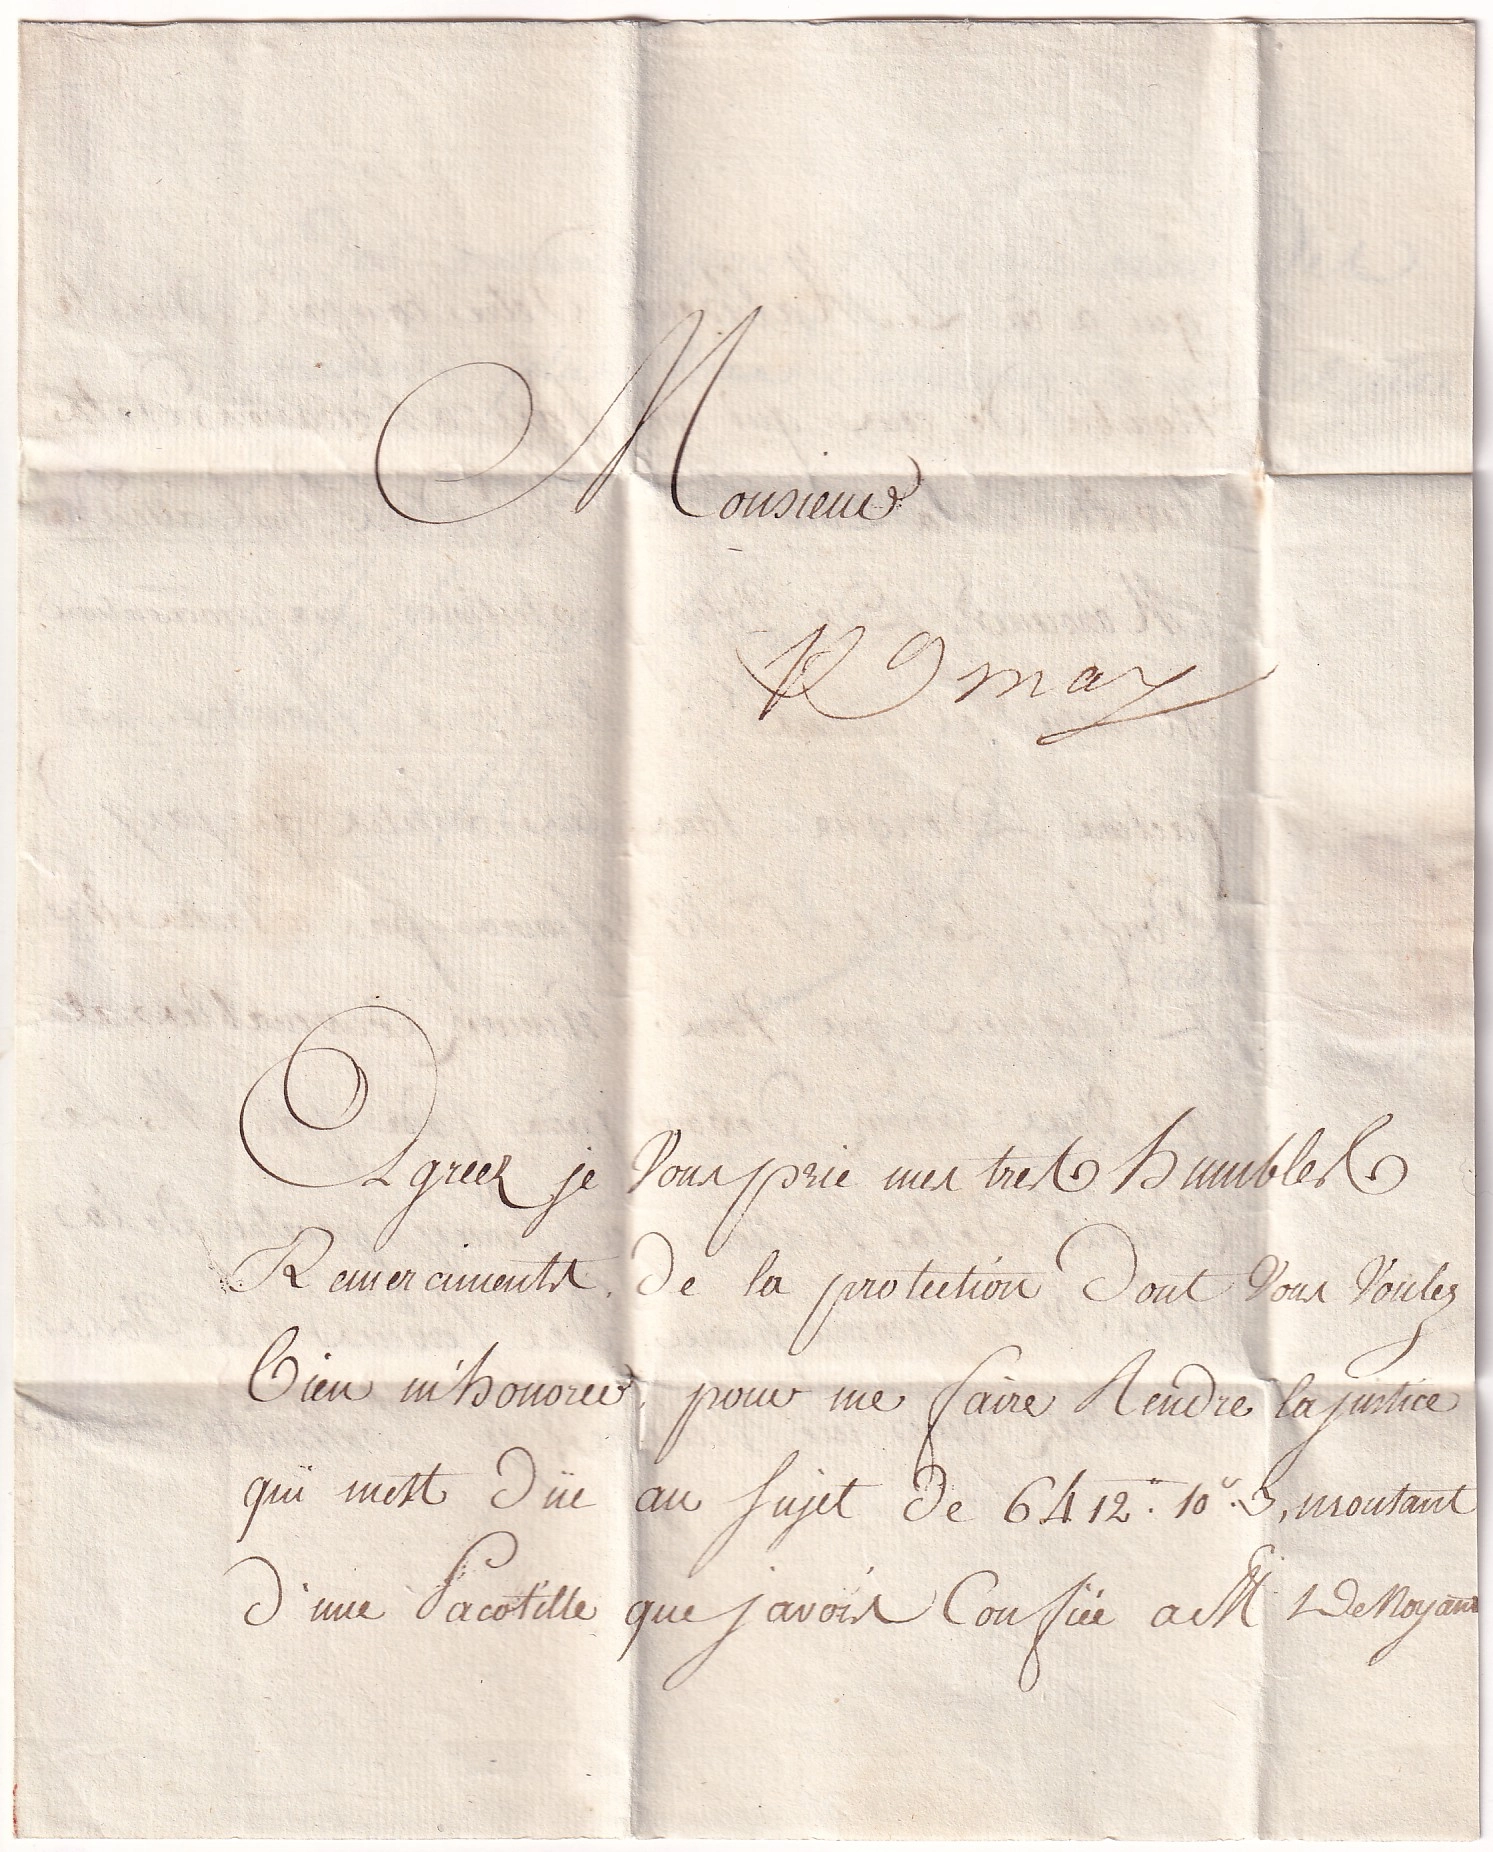 Monsieur
R 9 may
Agreez je Vous prie mes tres humbles
Remerciments de la protection dont Vous Voulez
bien m'honorer, pour me faire Rendre la justice
qui mest düe au sujet de 6412. 10. , montant
d'une Pacotille que javois Confiée a M DeNoyant